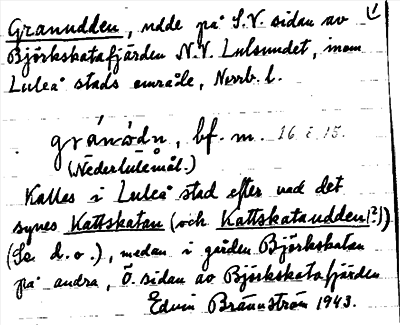 Granudden, udde på S.V. sidan av
Björkskatafjärden N.V. Lulsundet, inom
Luleå stads område, Norrb. l.
gránòdn, bf. m. 16.8.15.
(Nederlulemål.)
Kallas i Luleå stad efter vad det
synes Kattskatan (och Kattskataudden(?))
(Se d.o.), medan i gården Björkskatan
på andra, Ö. sidan av Björkskatafjärden
Edvin Brännström 1943.